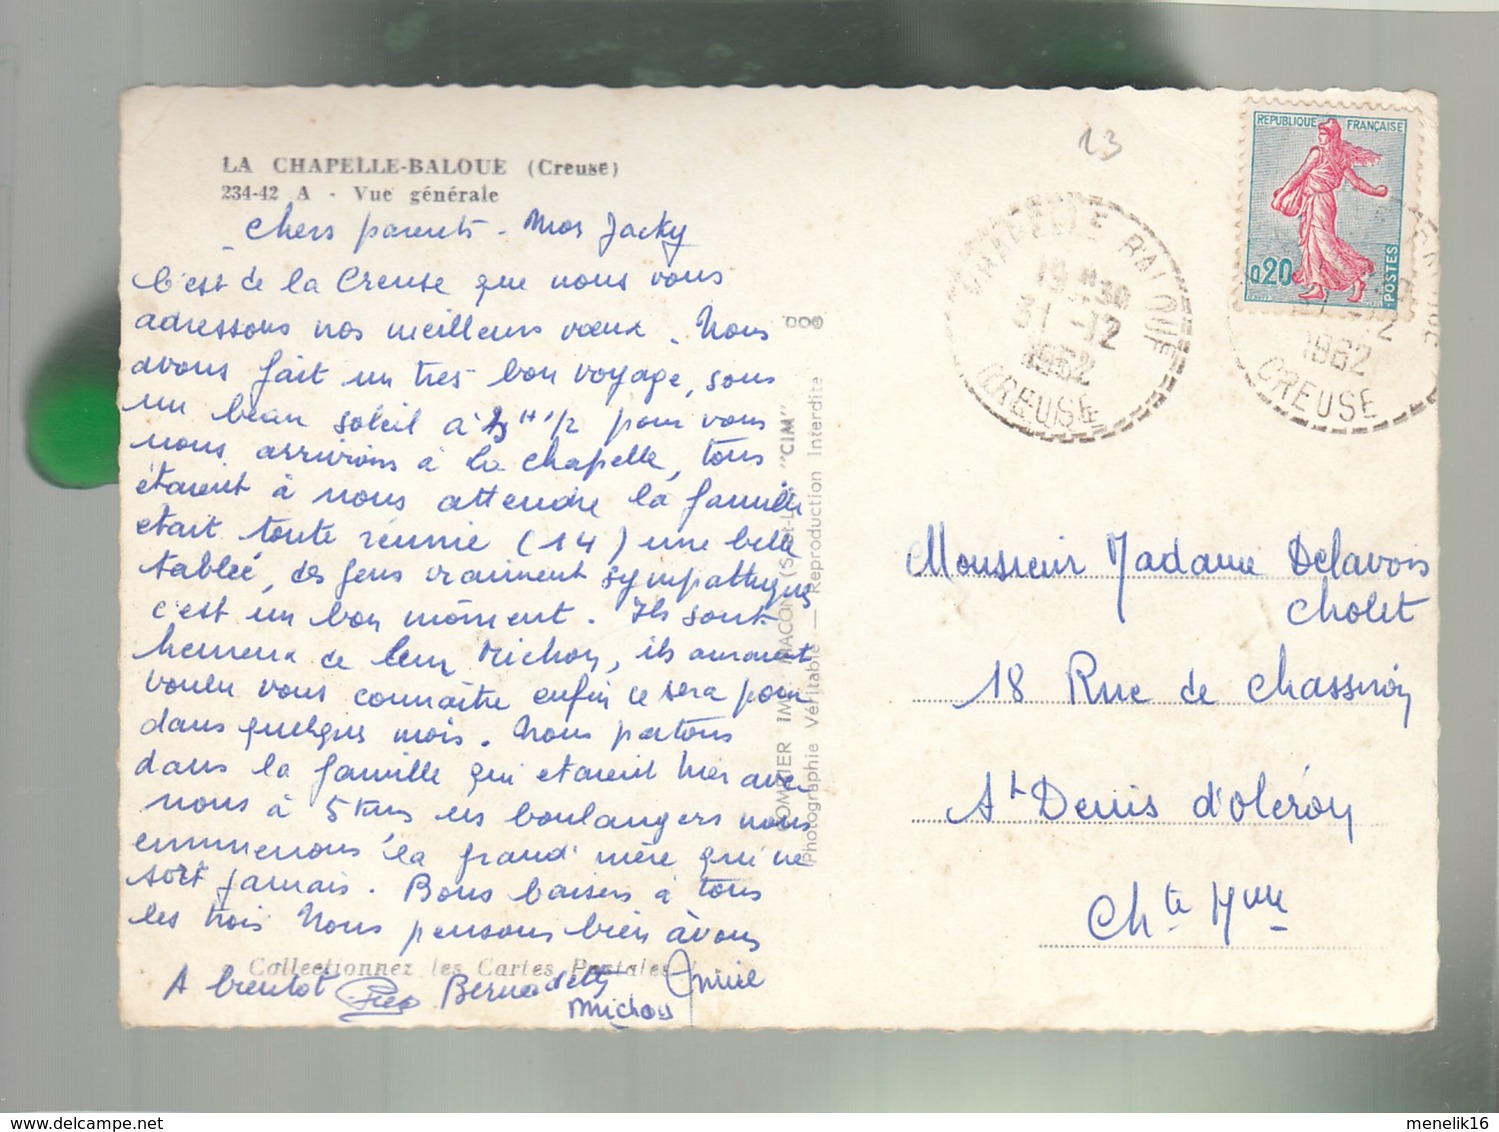 LA CHAPELLE-BALOUE (Creuse)
234-42 A - Vue générale
Chers parents - Mos Jacky
C'est de la Creuse que nous vous
adressons nos meilleurs vœux. Nous
avons fait un très bon voyage, sous
un beau soleil à H 1/2 pour vous
nous arrivions à la chapelle, tous
étaient à nous attendre la famille
était toute réunie (14) une belle
tablée, des gens vraiment sympathiques
c'est un bon moment. Ils sont
heureux de leur Michou, ils auraient
voulu vous connaître enfin ce sera pour
dans quelques mois. Nous partons
dans la famille qui étaient hier avec
nous à 5 Kms les boulangers nous
emmenons la grand'mère qui ne
sort jamais. Bons baisers à tous
les trois Nous pensons bien à vous
Collectionnez les Cartes Postales
A bientôt Bernadette
Michou
COMBIER IMP. MACON (S.-et-L.) "CIM"
Photographie Véritable — Reproduction Interdite
23
CHAPELLE BALOUE
19 H 30
31 - 12
1962
CREUSE
REPUBLIQUE FRANÇAISE
0,20
POSTES
1962
CREUSE
Monsieur Madame Delavois
Cholet
18 Rue de Chassiron
St Denis d'Oléron
Chte Mme
menelik16